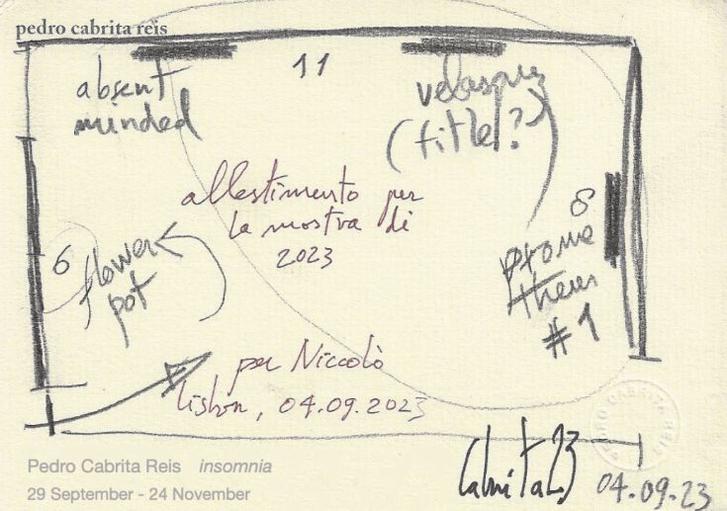 pedro cabrita reis
11
absent
minded
velasquez
(title?)
allestimento per
la mostra di
2023
8
Prome
theus
#1
6
flower
pot
per Niccolò
Lisbon, 04.09.2023
Cabrita 23
04.09.23
PEDRO CABRITA REIS
Pedro Cabrita Reis insomnia
29 September - 24 November